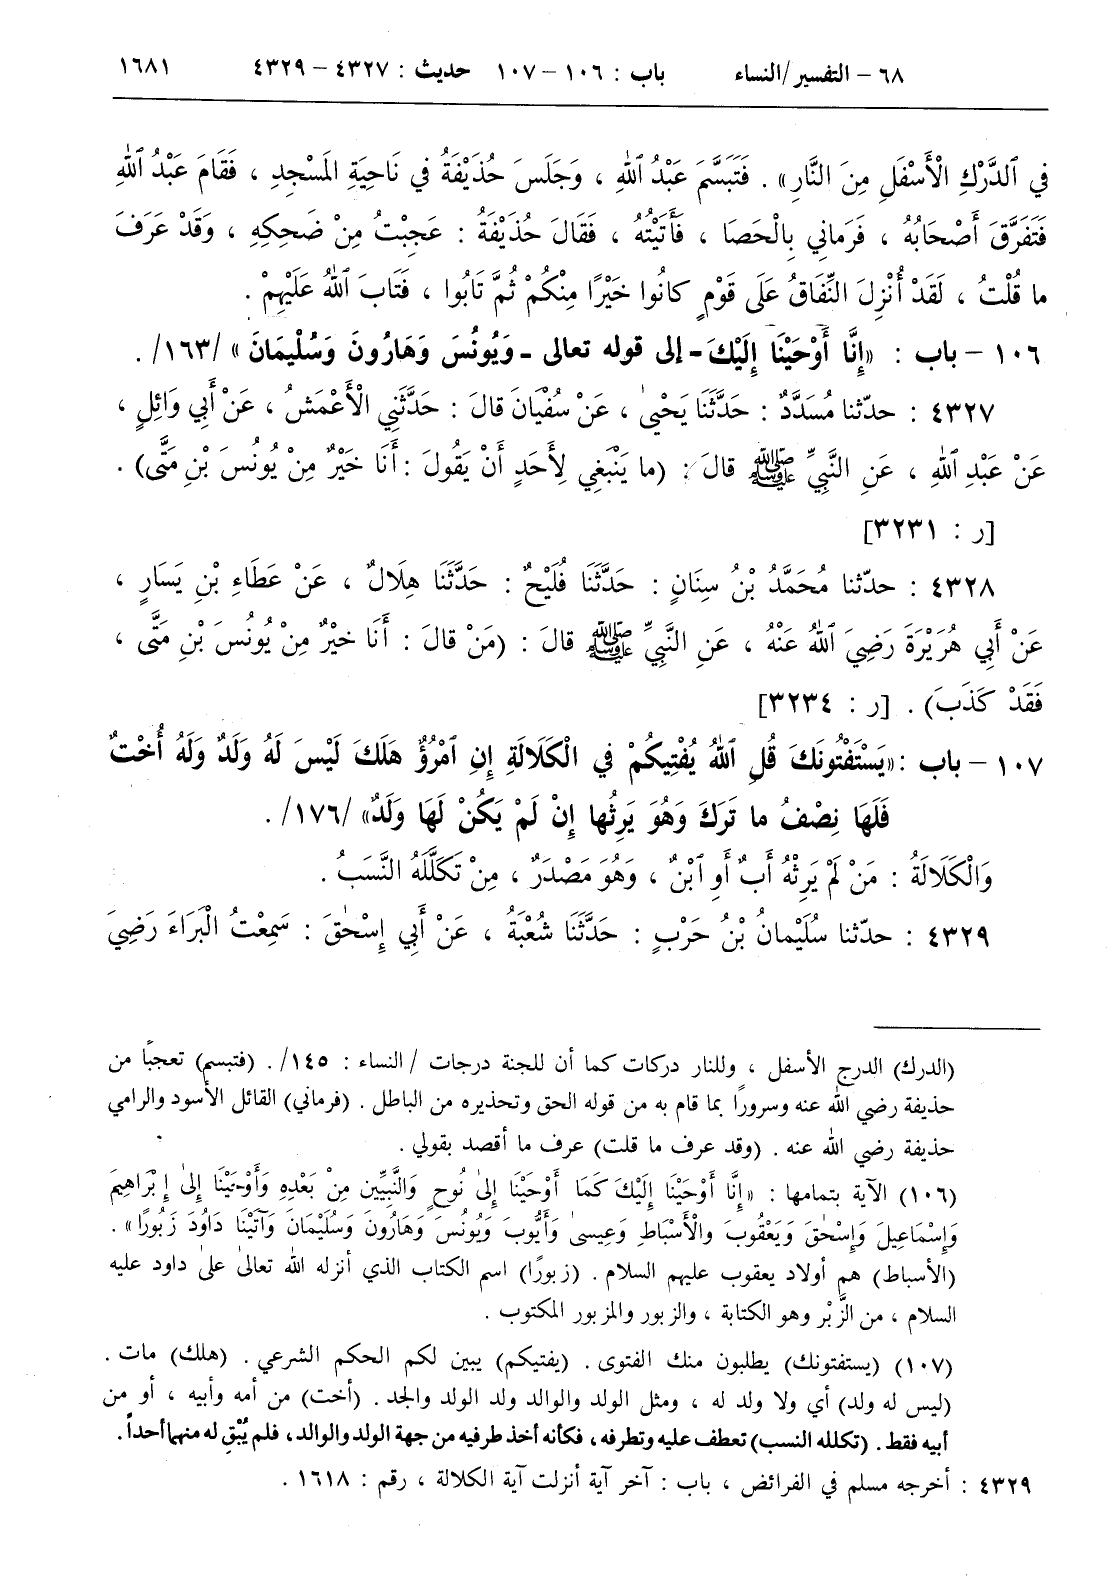 ٦٨ – التفسير/النساء باب : ١٠٦ – ١٠٧ حديث : ٤٣٢٧ – ٤٣٢٩ ١٦٨١
في ٱلدَّرْكِ الْأَسْفَلِ مِنَ النَّارِ» . فَتَبَسَّمَ عَبْدُ ٱللهِ ، وَجَلَسَ حُذَيْفَةُ في نَاحِيَةِ المَسْجِدِ ، فَقَامَ عَبْدُ ٱللهِ
فَتَفَرَّقَ أَصْحَابُهُ ، فَرَمانِي بِالْحَصَا ، فَأَتَيْتُهُ ، فَقَالَ حُذَيْفَةُ : عَجِبْتُ مِنْ ضَحِكِهِ ، وَقَدْ عَرَفَ
ما قُلْتُ ، لَقَدْ أُنْزِلَ النِّفَاقُ عَلَى قَوْمٍ كانُوا خَيْرًا مِنْكُمْ ثُمَّ تَابُوا ، فَتَابَ ٱللهُ عَلَيْهِمْ .
١٠٦ – باب : «إِنَّا أَوْحَيْنَا إِلَيْكَ – إلى قوله تعالى – وَيُونُسَ وَهَارُونَ وَسُلَيْمَانَ» /١٦٣/ .
٤٣٢٧ : حدّثنا مُسَدَّدٌ : حَدَّثَنَا يَحْيىٰ ، عَنْ سُفْيَانَ قالَ : حَدَّثَنِي الْأَعْمَشُ ، عَنْ أَبِي وَائِلٍ ،
عَنْ عَبْدِ ٱللهِ ، عَنِ النَّبِيِّ ﷺ قالَ : (ما يَنْبَغِي لِأَحَدٍ أَنْ يَقُولَ : أَنَا خَيْرٌ مِنْ يُونُسَ بْنِ مَتَّى) .
[ر : ٣٢٣١]
٤٣٢٨ : حدّثنا مُحَمَّدُ بْنُ سِنَانٍ : حَدَّثَنَا فُلَيْحٌ : حَدَّثَنَا هِلَالٌ ، عَنْ عَطَاءِ بْنِ يَسَارٍ ،
عَنْ أَبِي هُرَيْرَةَ رَضِيَ ٱللهُ عَنْهُ ، عَنِ النَّبِيِّ ﷺ قالَ : (مَنْ قالَ : أَنَا خَيْرٌ مِنْ يُونُسَ بْنِ مَتَّى ،
فَقَدْ كَذَبَ) . [ر : ٣٢٣٤]
١٠٧ – باب : «يَسْتَفْتُونَكَ قُلِ ٱللهُ يُفْتِيكُمْ في الْكَلَالَةِ إِنِ ٱمْرُؤٌ هَلَكَ لَيْسَ لَهُ وَلَدٌ وَلَهُ أُخْتٌ
فَلَهَا نِصْفُ ما تَرَكَ وَهُوَ يَرِثُها إِنْ لَمْ يَكُنْ لَهَا وَلَدٌ» /١٧٦/ .
وَالْكَلَالَةُ : مَنْ لَمْ يَرِثْهُ أَبٌ أَوِ ٱبْنٌ ، وَهُوَ مَصْدَرٌ ، مِنْ تَكَلَّلَهُ النَّسَبُ .
٤٣٢٩ : حدّثنا سُلَيْمانُ بْنُ حَرْبٍ : حَدَّثَنَا شُعْبَةُ ، عَنْ أَبِي إِسْحٰقَ : سَمِعْتُ الْبَرَاءَ رَضِيَ
(الدرك) الدرج الأسفل ، وللنار دركات كما أن للجنة درجات /النساء : ١٤٥/ . (فتبسم) تعجبًا من
حذيفة رضي الله عنه وسرورًا بما قام به من قوله الحق وتحذيره من الباطل . (فرماني) القائل الأسود والرامي
حذيفة رضي الله عنه . (وقد عرف ما قلت) عرف ما أقصد بقولي .
(١٠٦) الآية بتمامها : «إِنَّا أَوْحَيْنَا إِلَيْكَ كَمَا أَوْحَيْنَا إِلىٰ نُوحٍ وَالنَّبِيِّين مِنْ بَعْدِهِ وَأَوْحَيْنَا إِلىٰ إِبْرَاهِيمَ
وَإِسْمَاعِيلَ وَإِسْحٰقَ وَيَعْقُوبَ وَالْأَسْبَاطِ وَعِيسىٰ وَأَيُّوبَ وَيُونُسَ وَهَارُونَ وَسُلَيْمَانَ وَآتَيْنَا دَاوُدَ زَبُورًا» .
(الأسباط) هم أولاد يعقوب عليهم السلام . (زبورًا) اسم الكتاب الذي أنزله الله تعالىٰ علىٰ داود عليه
السلام ، من الزَّبْر وهو الكتابة ، والزبور والمزبور المكتوب .
(١٠٧) (يستفتونك) يطلبون منك الفتوى . (يفتيكم) يبين لكم الحكم الشرعي . (هلك) مات .
(ليس له ولد) أي ولا ولد له ، ومثل الولد والوالد ولد الولد والجد . (أخت) من أمه وأبيه ، أو من
أبيه فقط . (تكلله النسب) تعطف عليه وتطرفه ، فكأنه أخذ طرفيه من جهة الولد والوالد ، فلم يُبْقِ له منهما أحداً .
٤٣٢٩ : أخرجه مسلم في الفرائض ، باب : آخر آية أنزلت آية الكلالة ، رقم : ١٦١٨ .